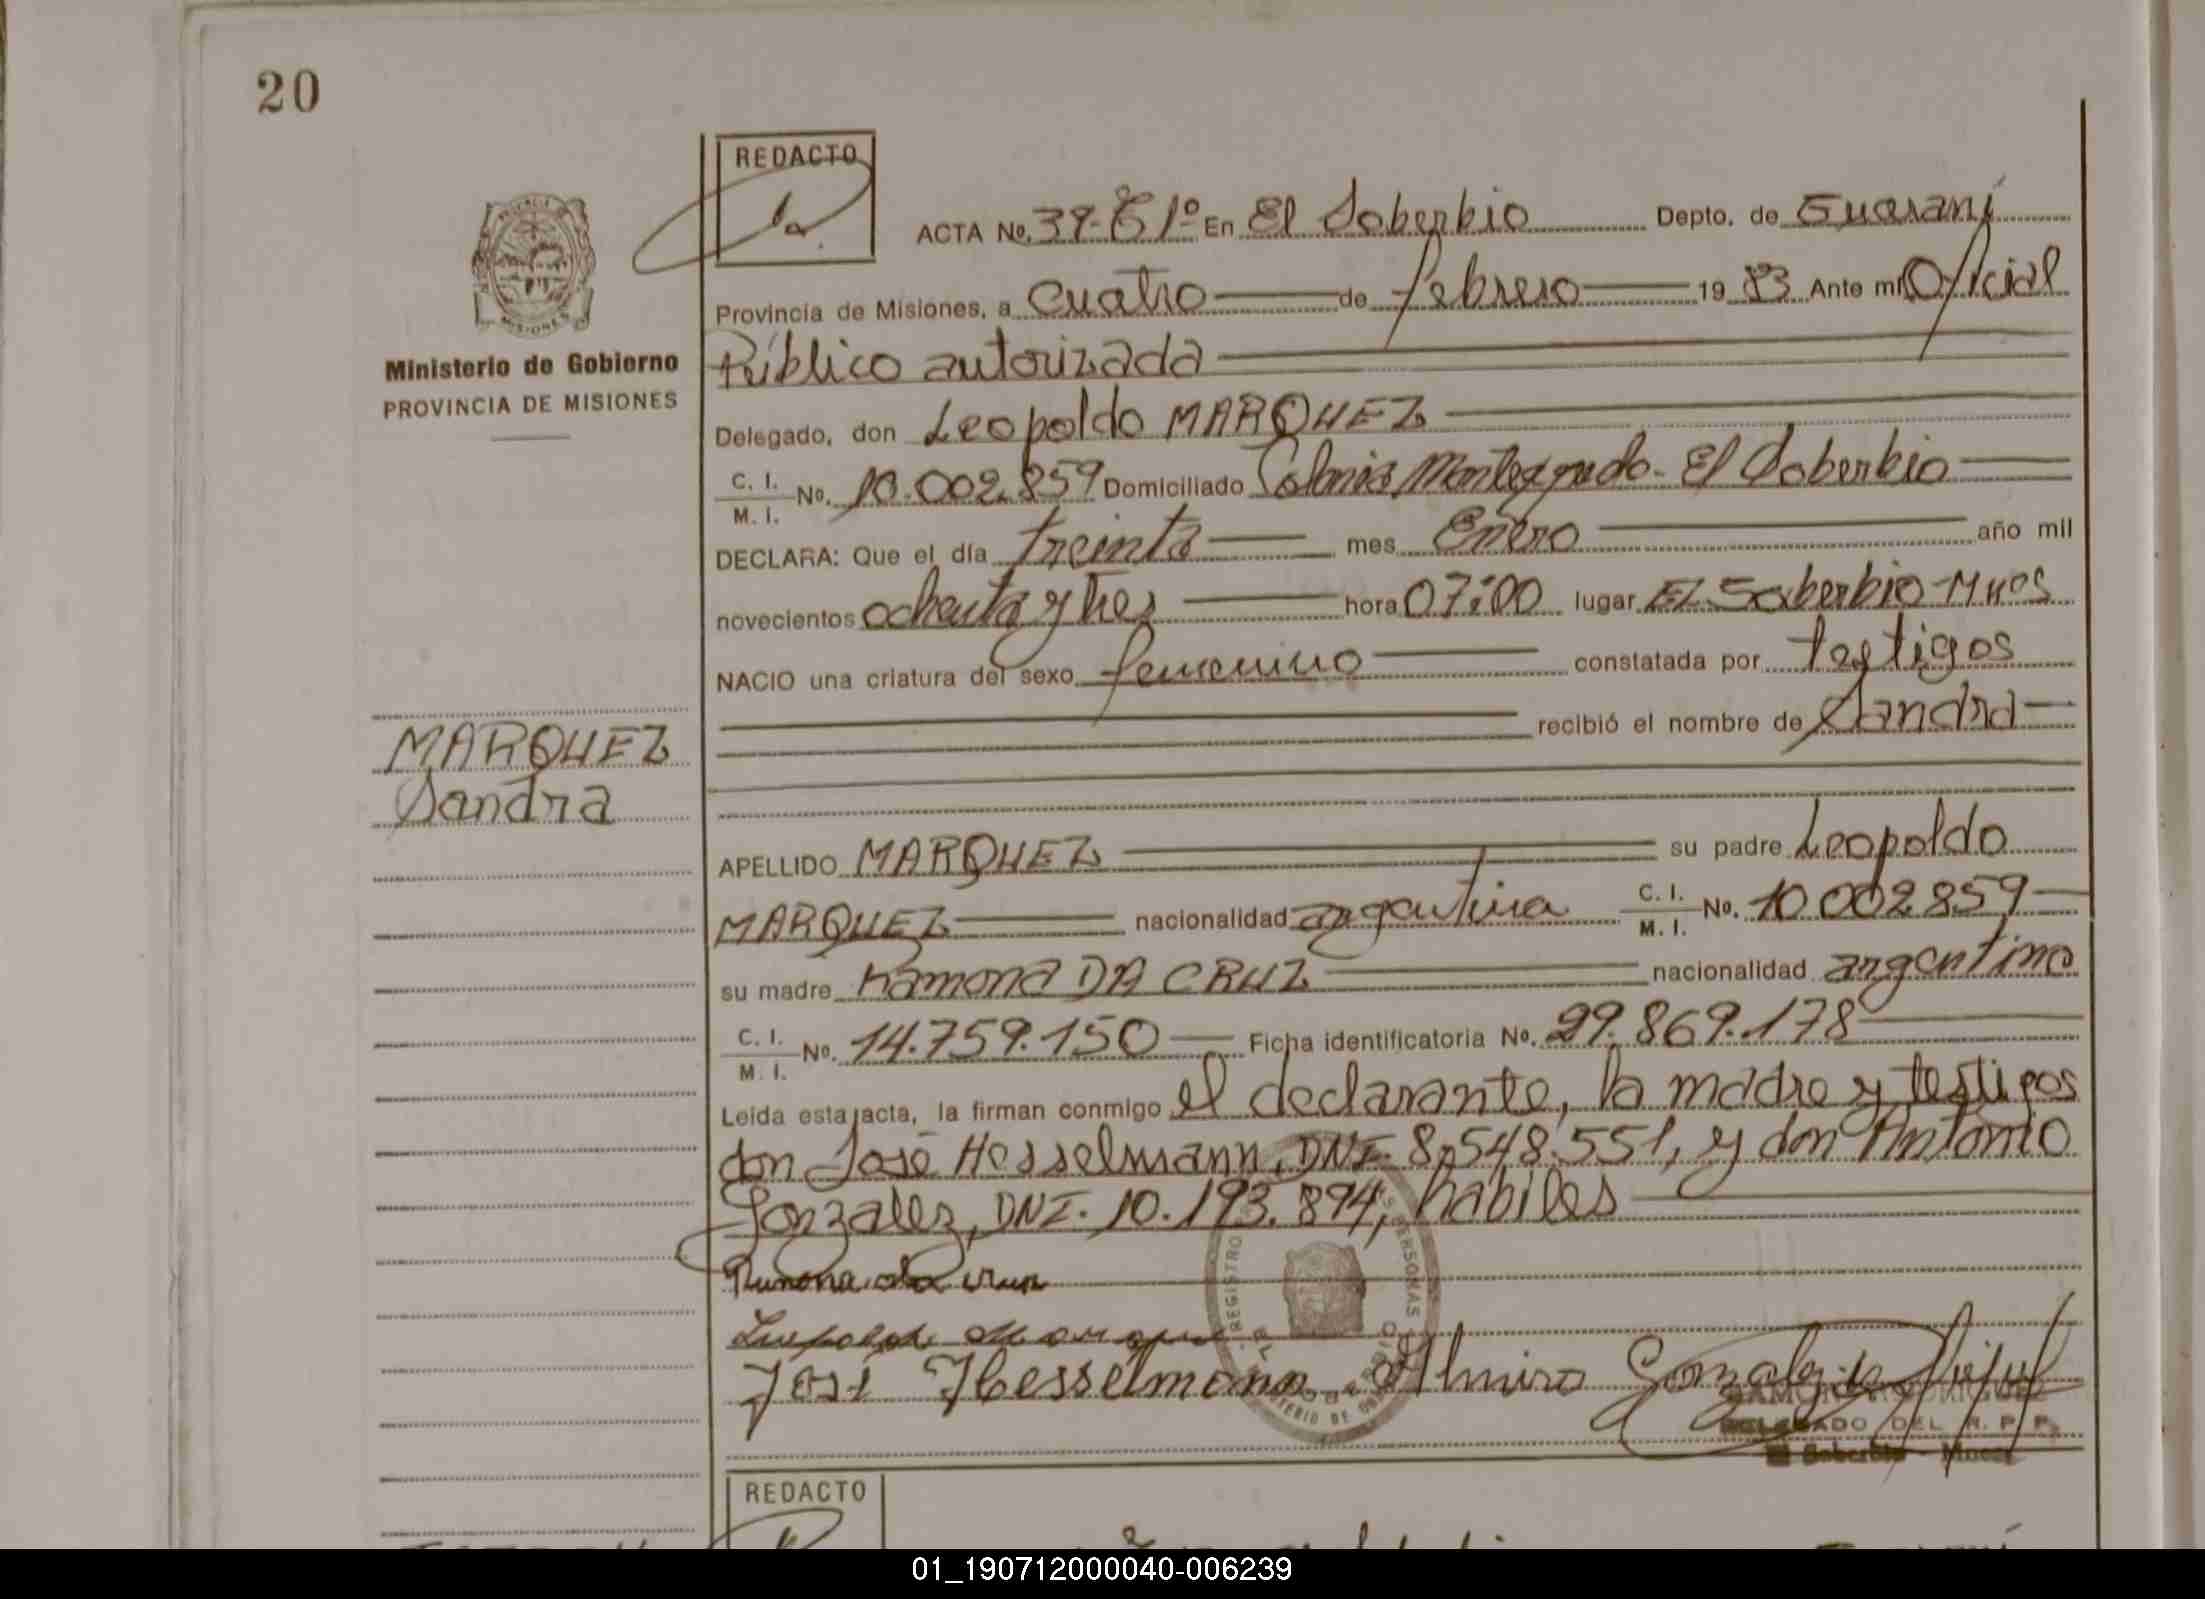 20
REDACTO
ACTA No. 39- T 1º En El Soberbio Depto. de Guaraní
Provincia de Misiones, a Cuatro de febrero 19 83 Ante mi Oficial
Público autorizada
Ministerio de Gobierno
PROVINCIA DE MISIONES
Delegado, don Leopoldo MARQUEZ
C. I. M. I. No. 10.002.859 Domiciliado Colonia Monteagudo - El Soberbio
DECLARA: Que el día treinta mes Enero año mil
novecientos ochenta y tres hora 07:00 lugar El Soberbio - Mnes
NACIO una criatura del sexo femenino constatada por testigos
recibió el nombre de Sandra
MARQUEZ
Sandra
APELLIDO MARQUEZ su padre Leopoldo
MARQUEZ nacionalidad argentina C. I. M. I. No. 10.002.859
su madre Ramona DA CRUZ nacionalidad argentina
C. I. M. I. No. 14.759.150 Ficha identificatoria No. 29.869.178
Leída esta acta, la firman conmigo el declarante, la madre y testigos
don José Hesselmann, DNI. 8.548.551, y don Antonio
Gonzalez, DNI. 10.193.894, habiles
Ramona da Cruz
Leopoldo Marquez
José Hesselmann Almiro Gonzalez
DELEGADO DEL R. P. P.
El Soberbio - Mnes
REDACTO
01_190712000040-006239